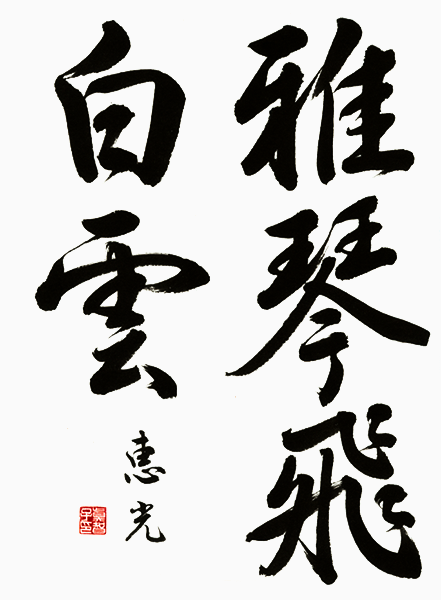 雅琴飛
白雲
恵光